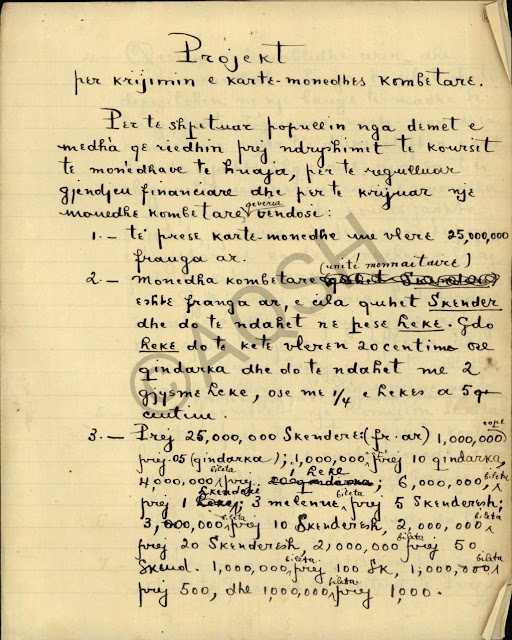 Projekt
per krijimin e karte-monedhes kombetare.
Per te shpetuar popullin nga demet e
medha qe riedhin prej ndryshimit te koursit
te monedhave te huaja, per te regulluar
gjendjen financiare dhe per te krijuar nje
monedhe kombetare, qeveria vendosi:
1. — te prese karte-monedhe me vlere 25,000,000
franga ar.
(unité monnaitaire)
2. — Monedha kombetare
eshte franga ar, e cila quhet Skender
dhe do te ndahet ne pese Leke. Gdo
Leke do te kete vleren 20 centime ose
qindarka dhe do te ndahet me 2
gjysme Leke, ose me 1/4 e Lekes a 5 q
centime.
3. — Prej 25,000,000 Skendere: (fr. ar) 1,000,000 cope
prej 05 (qindarka); 1,000,000 prej 10 qindarka,
4,000,000 bileta prej 1 Leke 20 qindarka; 6,000,000 bileta
prej 1 Skender Leke; 3 bileta prej 5 Skendersh;
3,000,000 bileta prej 10 Skendersh, 2,000,000 bileta
prej 20 Skendersh, 2,000,000 bileta prej 50
Skend. 1,000,000 bileta prej 100 Sk, 1,000,000 bileta
prej 500, dhe 1,000,000 bileta prej 1,000.
©AQSH